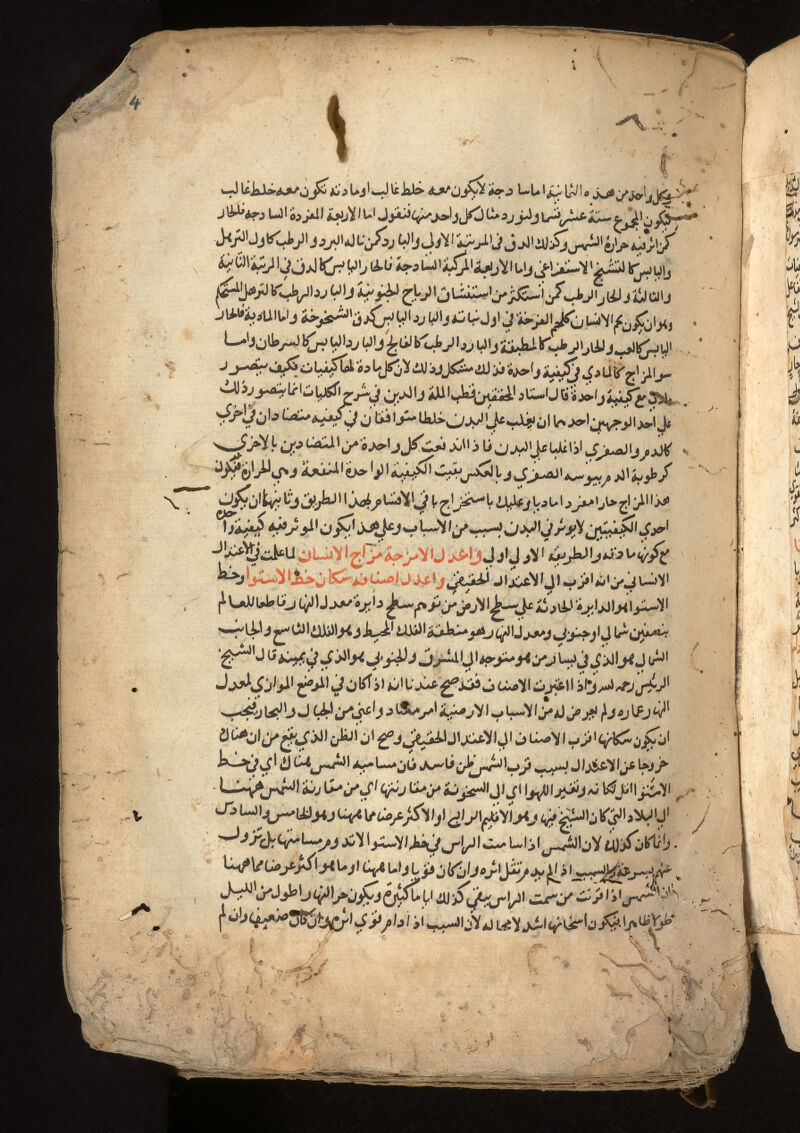 4
وكل واحد من هذه الثمانية اما ساذجة لا يكون معه خلط غالب او مادته تكون معه خلط غالب
فيكون المجموع ستة عشر قسما ولنورد مثال كل واحد منها فنقول اما الاربعة المفردة الساذجة فالحار
كمن اثر فيه حرارة الشمس وكذلك الدق في المرتبة الاولي والبارد كمن ناله البرد والرطب كاول الترهل
واليابس كالتشنج الاستفراغي واما الاربعة المركبة الساذجة فالحار اليابس كالدق في المرتبة الثانية
والثالثة والحار الرطب كمن استكثر من استنشاق الرياح الجنوبية والبارد الرطب كالترهل المستحكم
وهو ان يكون لحم الانسان كلحم الفرخة في اول نباته والبارد اليابس كدق الشيخوخة واما المادية فالحار
اليابس كالغب والحار الرطب كالمطبقة والبارد الرطب كالفالج والبارد اليابس كالسرطان واما
سو المزاج كالمادي في كيفية واحدة فذلك مشكل وذلك لان كل مادة لها كيفيات فكيف يتصور
مع كيفية واحدة قال استاد المحققين قطب الملة والدين في شرح الكليات انما يتصور ذلك
علي احد الوجهين احدهما ان يغلب علي البدن خلطا متوافقان في كيفيه متضادان في اخري
كالدم والصفري اذا غلبا علي البدن فاذا اندفعت كل واحدة من المتضادين بالاخري
كرطوبة الدم بيبوسه الصفري وبالعكس بقيت الكيفية الواحدة المتفعة وهي الحرارة فيكون
هذا المزاج حارا مفردا ماديا وعليك باستخراج باقي الاقسام بهذا الطريق وثانيهما ان يكون
احدي الكيفيتين لا يوثر في البدن بسبب من الاسباب وعلي هذا يكون الموثر فيه كيفية واحدة
مع كونها مادته والطريقه الاولي اولي واعدل الامزجة مزاج الانسان لما علمت في الاعتدال
الانساني من انه اقرب الي الاعتدال الحقيقي واعدل اصنافه سكان خط الاستوا وخط
الاستوا هو الدايرة الحادثة علي سطح الارض من توهم سطح دايرة معدل النهار قاطعا للعالم
بنصفين شمالي وجنوبي ومعدل النهار هو منطقة الفلك المحيط وهو الفلك التاسع والجانب
الشمالي هو الذي في يسار من هو متوجه الي المشرق والجنوبي هو الذي في يمينه قال الشيخ
الرئيس رحمه الله واذا اعتبرت الاصناف فقد صح عندنا انه اذا كان في الموضع الموازي لمعدل
النهار عماره ولم يعرض له من الاسباب الارضية امر مضاد واعني من الجبال والبحار فيجب
ان يكون سكانها اقرب الاصناف الي الاعتدال الحقيقي وصح ان الظن الذي يقع من ان هناك
خروجا عن الاعتدال بسبب قرب الشمس ظن فاسد فان مسامتة الشمس هناك اي في خط
الاستوا اقل نكانه وتغير اللهوا اي الي السخونة من مقارنتها اي من مقارنة الشمس ههنا
الي البلاد التي كان الشيخ فيها وهو الاقليم الرابع او الاكثر عرضا مما ههنا وهو الخامس والسادس
وانما كان كذلك لان الشمس اذا سامت الراس في خط الاستوا لا تدوم مسامتها بل تزول
عنهم بسرعة والسبب اذا لم يدم تقل اثره وان كان قويا واما ههنا او ما هو اكثر عرضا مما ههنا
فان الشمس اذا قربت من سمت الراس يبقي كذلك اياما كثيرة ويكون حر النهار اطول من الليل
طولا ظاهرا فيكون اسخانها اشد لا محاله لان السبب اذا دام قوي اثره وان كان ضعيفا وان لم